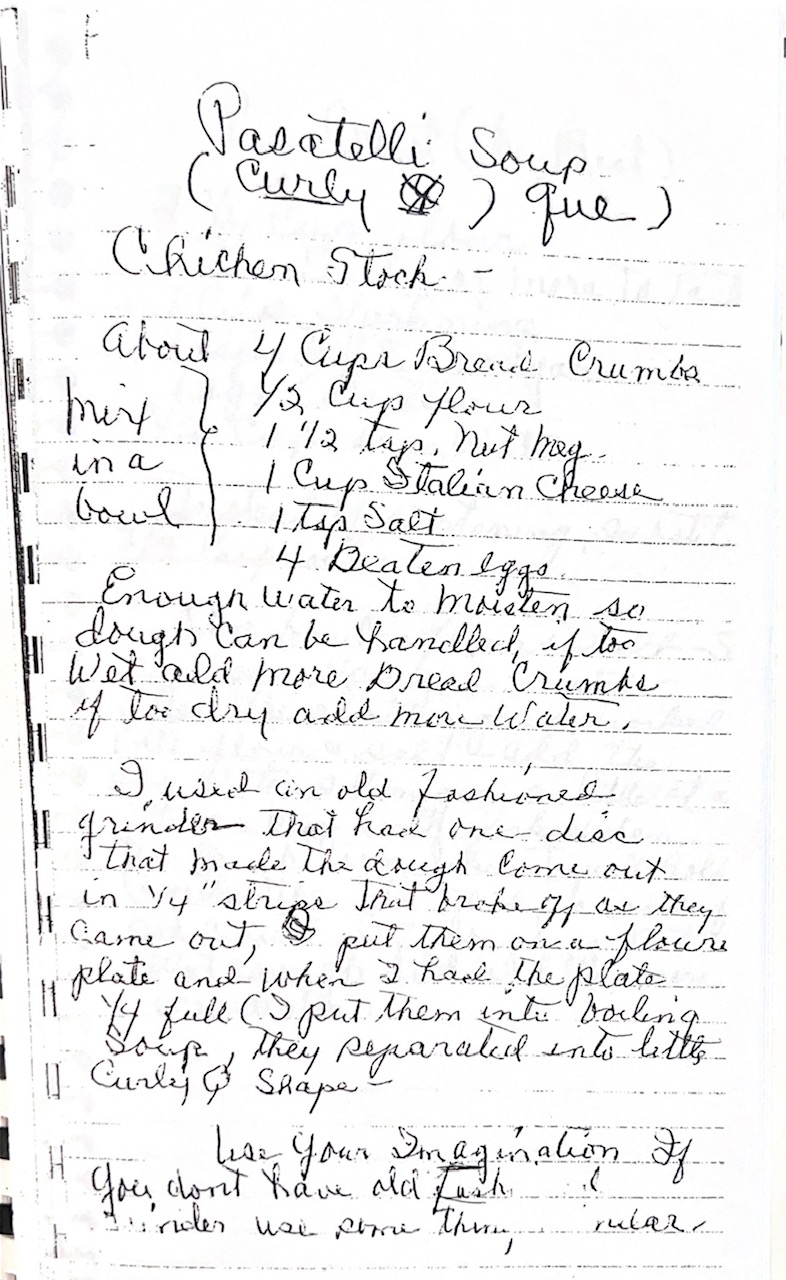 Pasatelli Soup
(Curly ) que)
Chicken Stock -
About 4 Cups Bread Crumbs
Mix in a bowl
1/2 Cup flour
1 1/2 tsp. Nut Meg.
1 Cup Italian Cheese
1 tsp Salt
4 Beaten eggs.
Enough water to moisten so
dough can be handled, if too
Wet add more Bread Crumbs
if too dry add more Water.
I used an old fashioned
grinder that had one disc
that made the dough come out
in 1/4" strips that broke off as they
came out, put them on a floure
plate and when I had the plate
1/4 full (I put them into boiling
Soup, they separated into little
Curly Q Shape -
Use Your Imagination If
You dont have old
use some thing